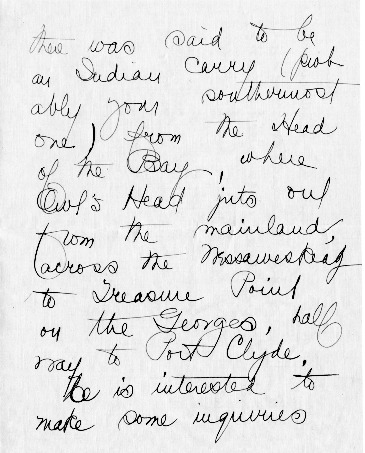 there was said to be
an Indian Carry (prob
ably your southernmost
one) from the Head
of the Bay, where
Owl's Head juts out
from the mainland,
(across the Wessaweskeag
to Treasure Point
on the Georges, half
way to Port Clyde.
He is interested to
make some inquiries